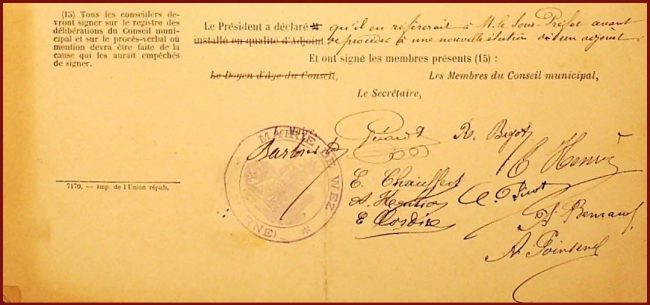 (15) Tous les conseillers de-
vront signer sur le registre des
délibérations du Conseil muni-
cipal et sur le procès-verbal où
mention devra être faite de la
cause qui les aurait empêchés
de signer.
7179. — Imp. de l'Union répub.
Le Président a déclaré qu'il en référerait à M. le Sous-Préfet avant
installé en qualité d'Adjoint de procéder à une nouvelle élection d'un adjoint.
Et ont signé les membres présents (15) :
Le Doyen d'âge du Conseil, Les Membres du Conseil municipal,
Le Secrétaire,
MAIRIE DE WEZ
(NE)
R. Bigot
E. Henry
E. Chauffert
E Cordier